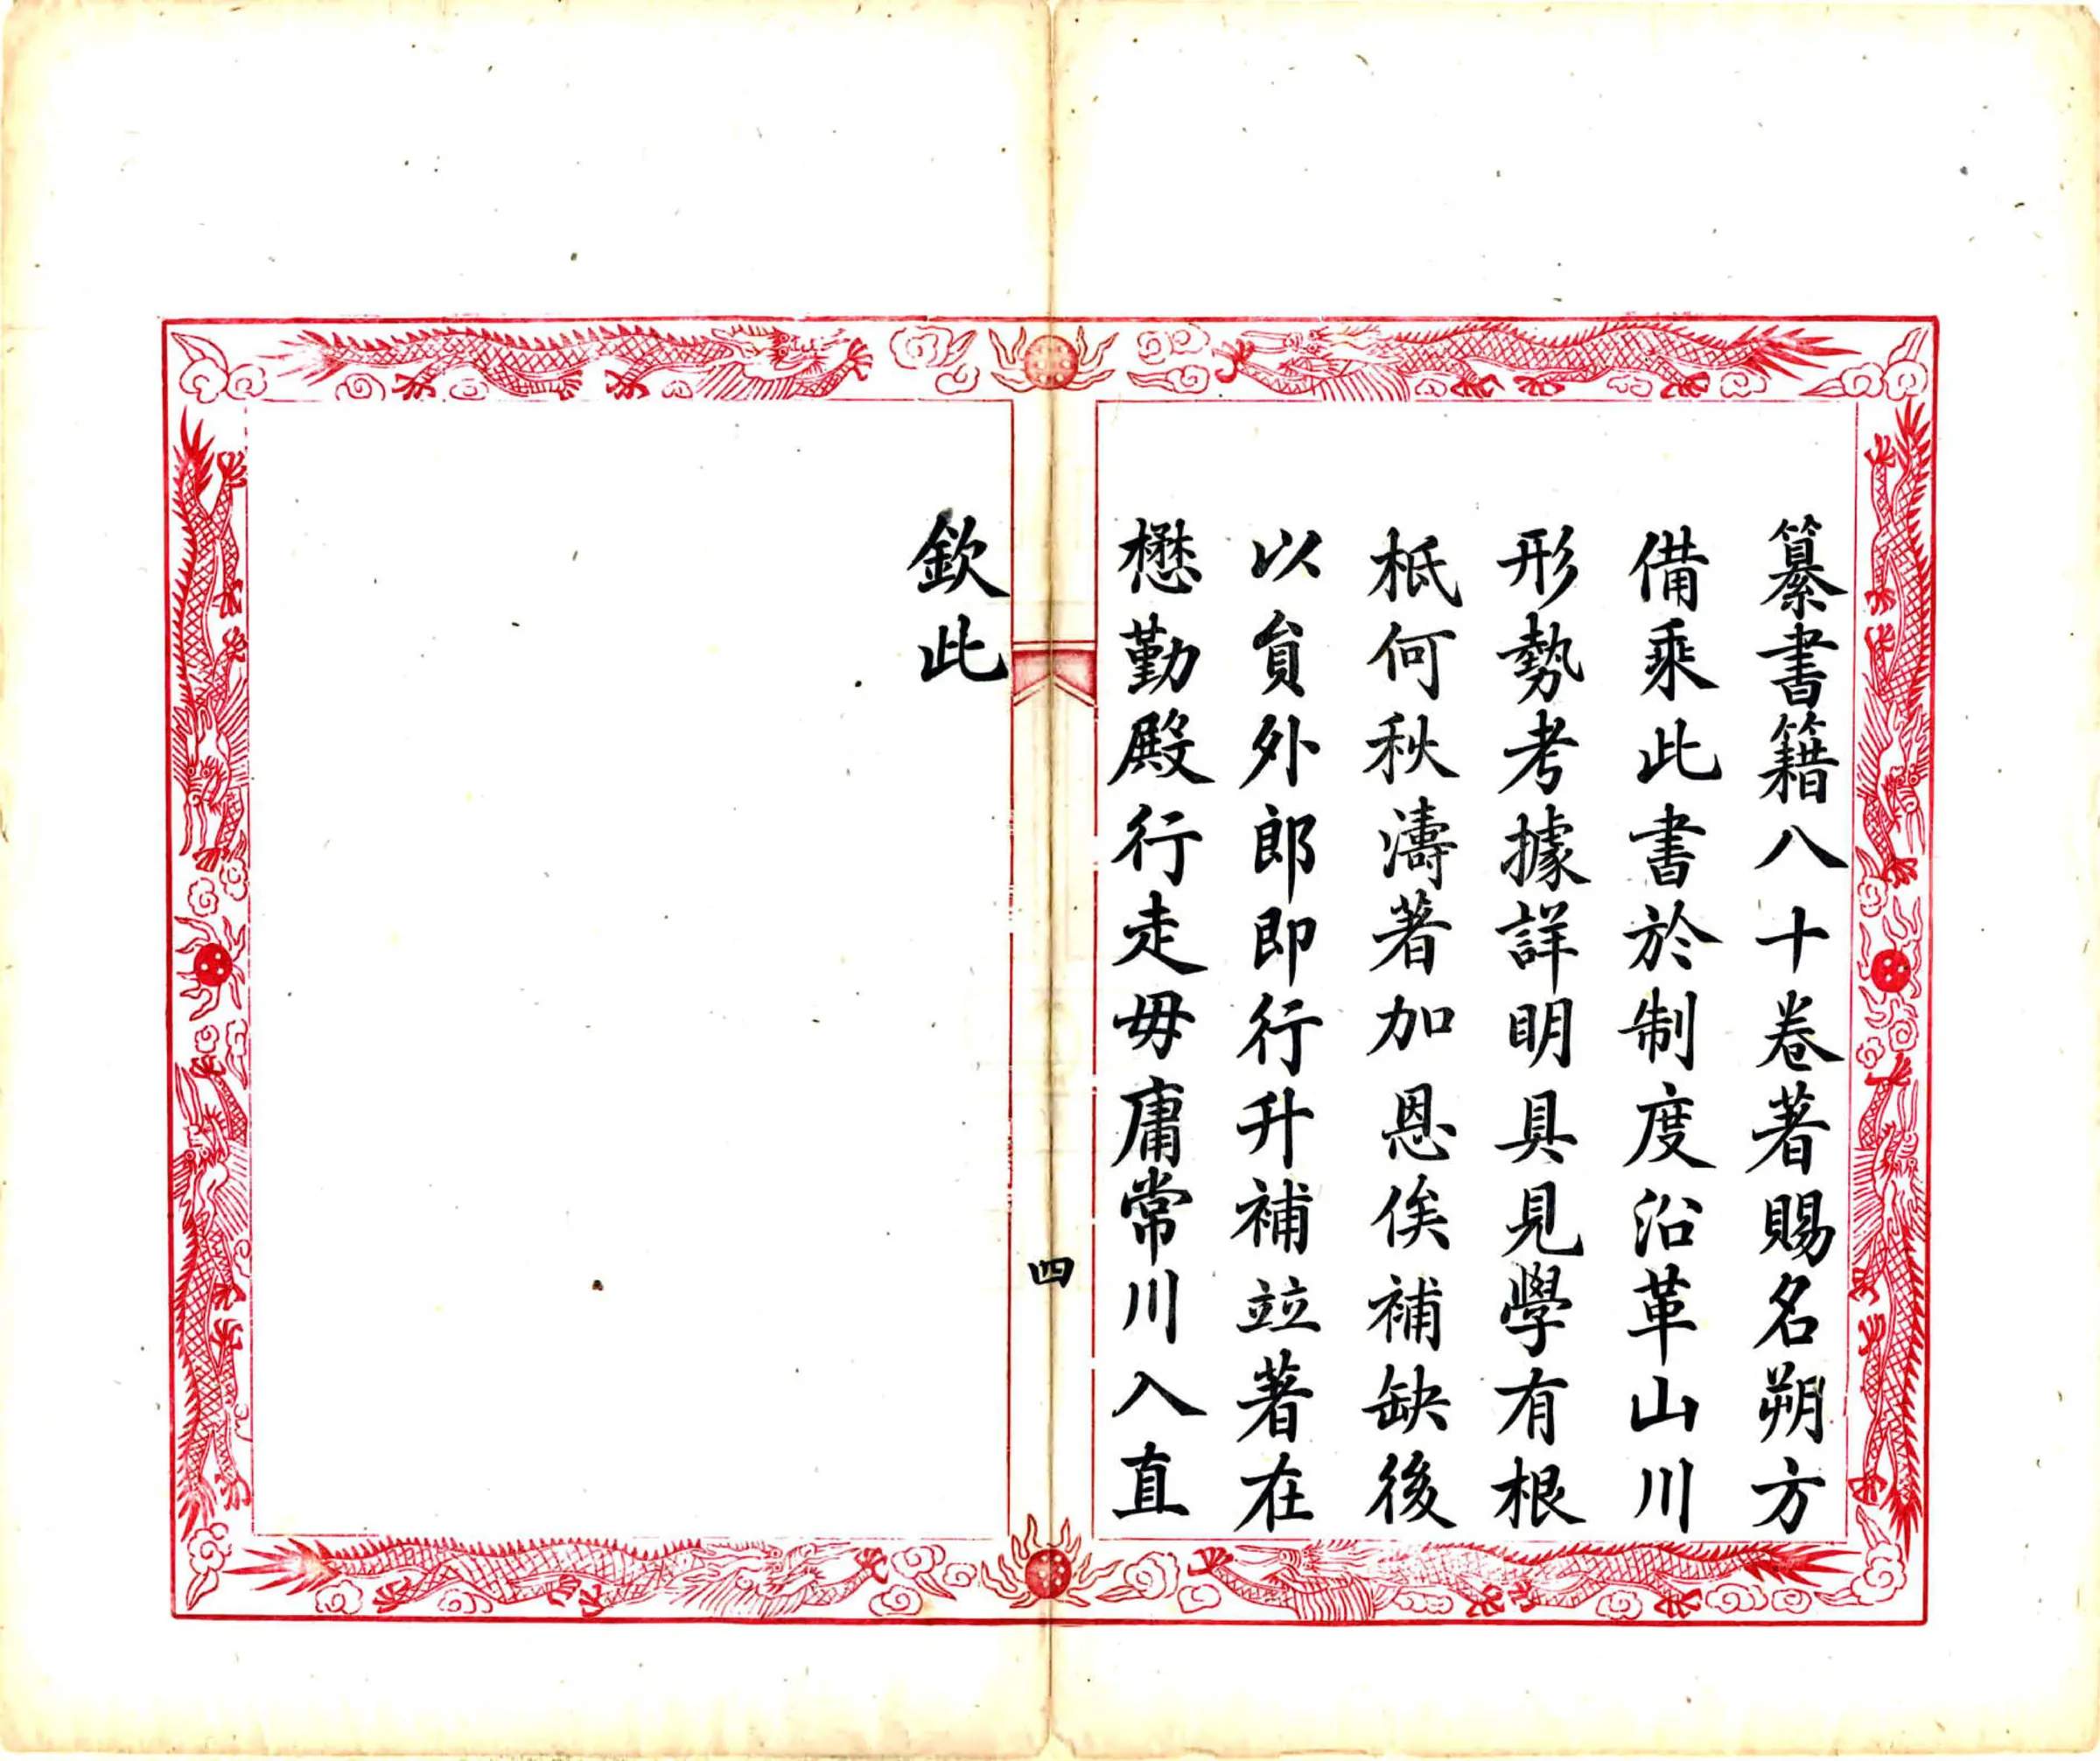 纂書籍八十卷著賜名朔方
備乘此書於制度沿革山川
形勢考據詳明具見學有根
柢何秋濤著加恩俟補缺後
以員外郎即行升補竝著在
懋勤殿行走毋庸常川入直
四
欽此